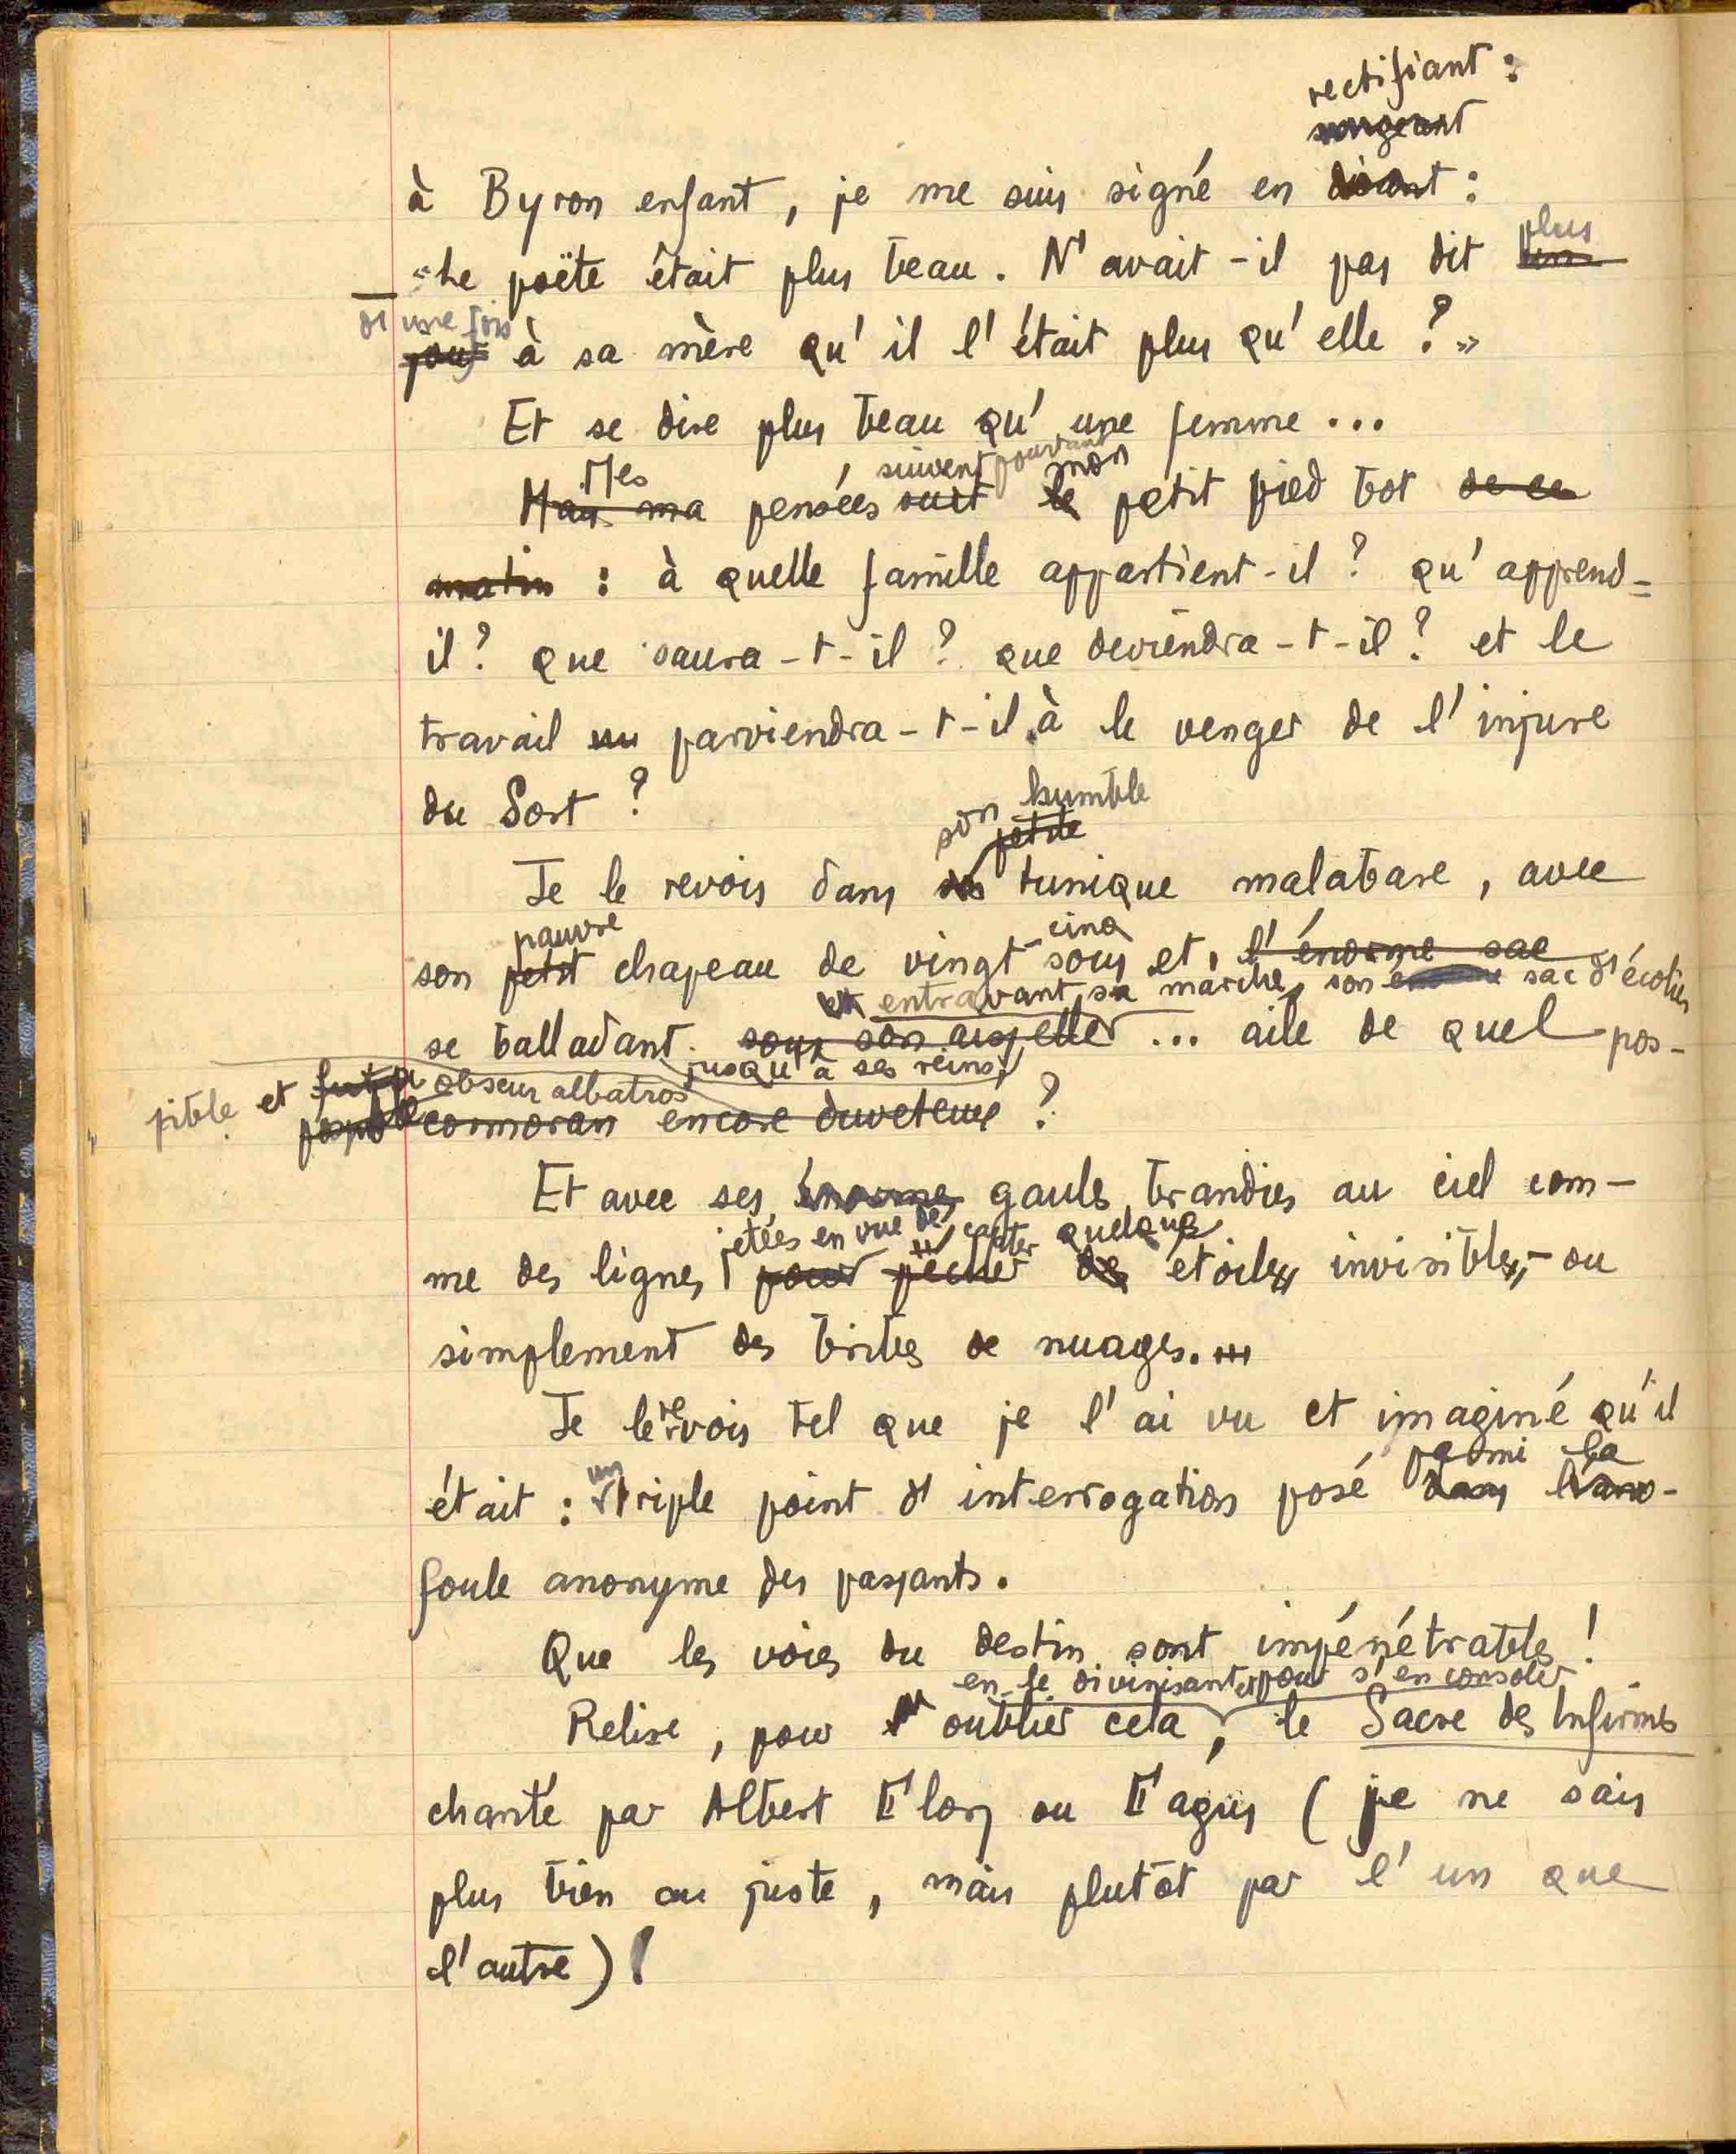 rectifiant :
songeant
à Byron enfant, je me suis signé en disant :
« Le poëte était plus beau. N'avait-il pas dit plus un
d'une fois jour à sa mère qu'il l'était plus qu'elle ? »
Et se dire plus beau qu'une femme ...
Mes suivent pourtant mon
Mais ma pensées suit le petit pied bot de ce
matin : à quelle famille appartient-il ? qu'apprend-
il ? que saura-t-il ? que deviendra-t-il ? et le
travail parviendra-t-il à le venger de l'injure
du Sort ?
son humble
petite
Je le revois dans sa tunique malabare, avec
pauvre cinq
son petit chapeau de vingt-sous et, l'énorme sac
et entravant sa marche, son énorme sac d'écolier
se balladant sous son aisselle ... aile de quel pos-
jusqu'à ses reins,
sible et futur obscur albatros
possible cormoran encore duveteux ?
Et avec ses énormes gaules brandies au ciel com-
jetées en vue de capter quelque
me des lignes pour pêcher des etoiles invisibles, - ou
simplement des bribes de nuages....
Je le revois tel que je l'ai vu et imaginé qu'il
un parmi la
était : triple point d'interrogation posé dans
foule anonyme des passants.
Que les voies du destin sont impénétrables !
en le divinisant et pour s'en consoler
Relire, pour oublier cela, le Sacre des Infirmes
chanté par Albert Flory ou Fagus (je ne sais
plus bien au juste, mais plutôt par l'un que
l'autre) !